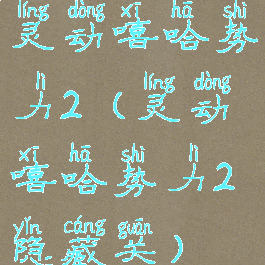 líng dòng xī hā shì
灵动嘻哈势
lì líng dòng
力2（灵动
xī hā shì lì
嘻哈势力2
yǐn cáng guān
隐藏关）